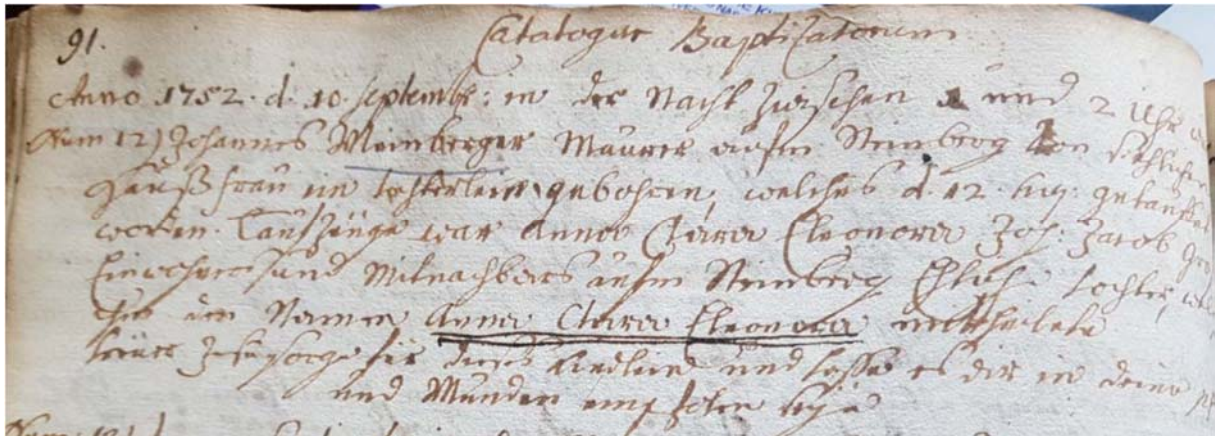 91. Catalogus Baptizatorum
Anno 1752. d. 10. Septembr: in der Nacht zwischen 1 und 2 Uhr
Num 12) Johannes Meinberger Maurer aufm Steinberg von
Haußfrau ein töchterlein gebohren, welches d. 12. huj: getaufft
worden. Taufzeuge war Anna Clara Eleonora Joh: Jacob
Einwohners und Mitnachbars aufm Steinberg Ehliche tochter,
ihr den Namen Anna Clara Eleonora mittheilete
Jesu sorge für dieses Kindlein und lasse es dir in deine
und Wunden empfohlen seyn